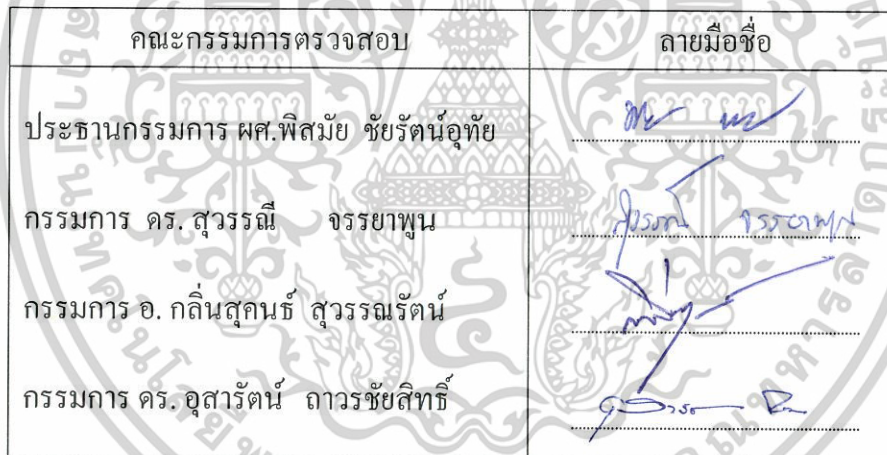 คณะกรรมการตรวจสอบ ลายมือชื่อ
ประธานกรรมการ ผศ.พิสมัย ชัยรัตน์อุทัย
กรรมการ ดร. สุวรรณี จรรยาพูน สุวรรณี จรรยาพูน
กรรมการ อ. กลิ่นสุคนธ์ สุวรรณรัตน์
กรรมการ ดร. อุสารัตน์ ถาวรชัยสิทธิ์